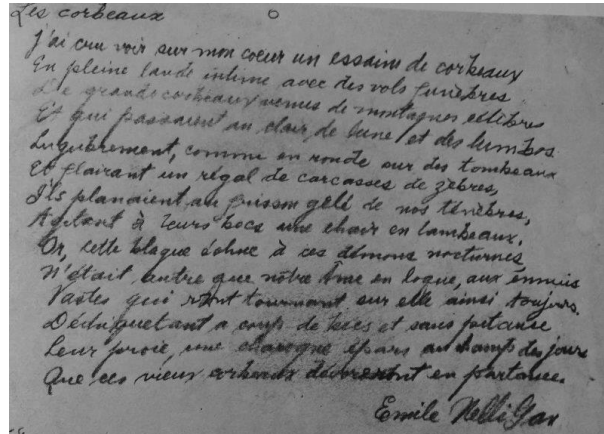 Les corbeaux
J'ai cru voir sur mon coeur un essaim de corbeaux
En pleine lande intime avec des vols funèbres
De grands corbeaux venus de montagnes célèbres
Et qui passaient au clair de lune et des
Lugubrement, comme en ronde sur des tombeaux
Et flairant un régal de carcasses de zèbres,
Ils planaient au frisson gelé de nos ténèbres,
Agitant à leurs becs une chair en lambeaux.
Or, cette échue à ces démons nocturnes
N'était autre que nôtre âme en loque, aux ennuis
Vastes qui vont tournant sur elle ainsi toujours.
Déchiquetant a coup de becs et sans
Leur proie, une charogne épars au champs des jours
Que ces vieux corbeaux dévoreront en
Emile Nelligan